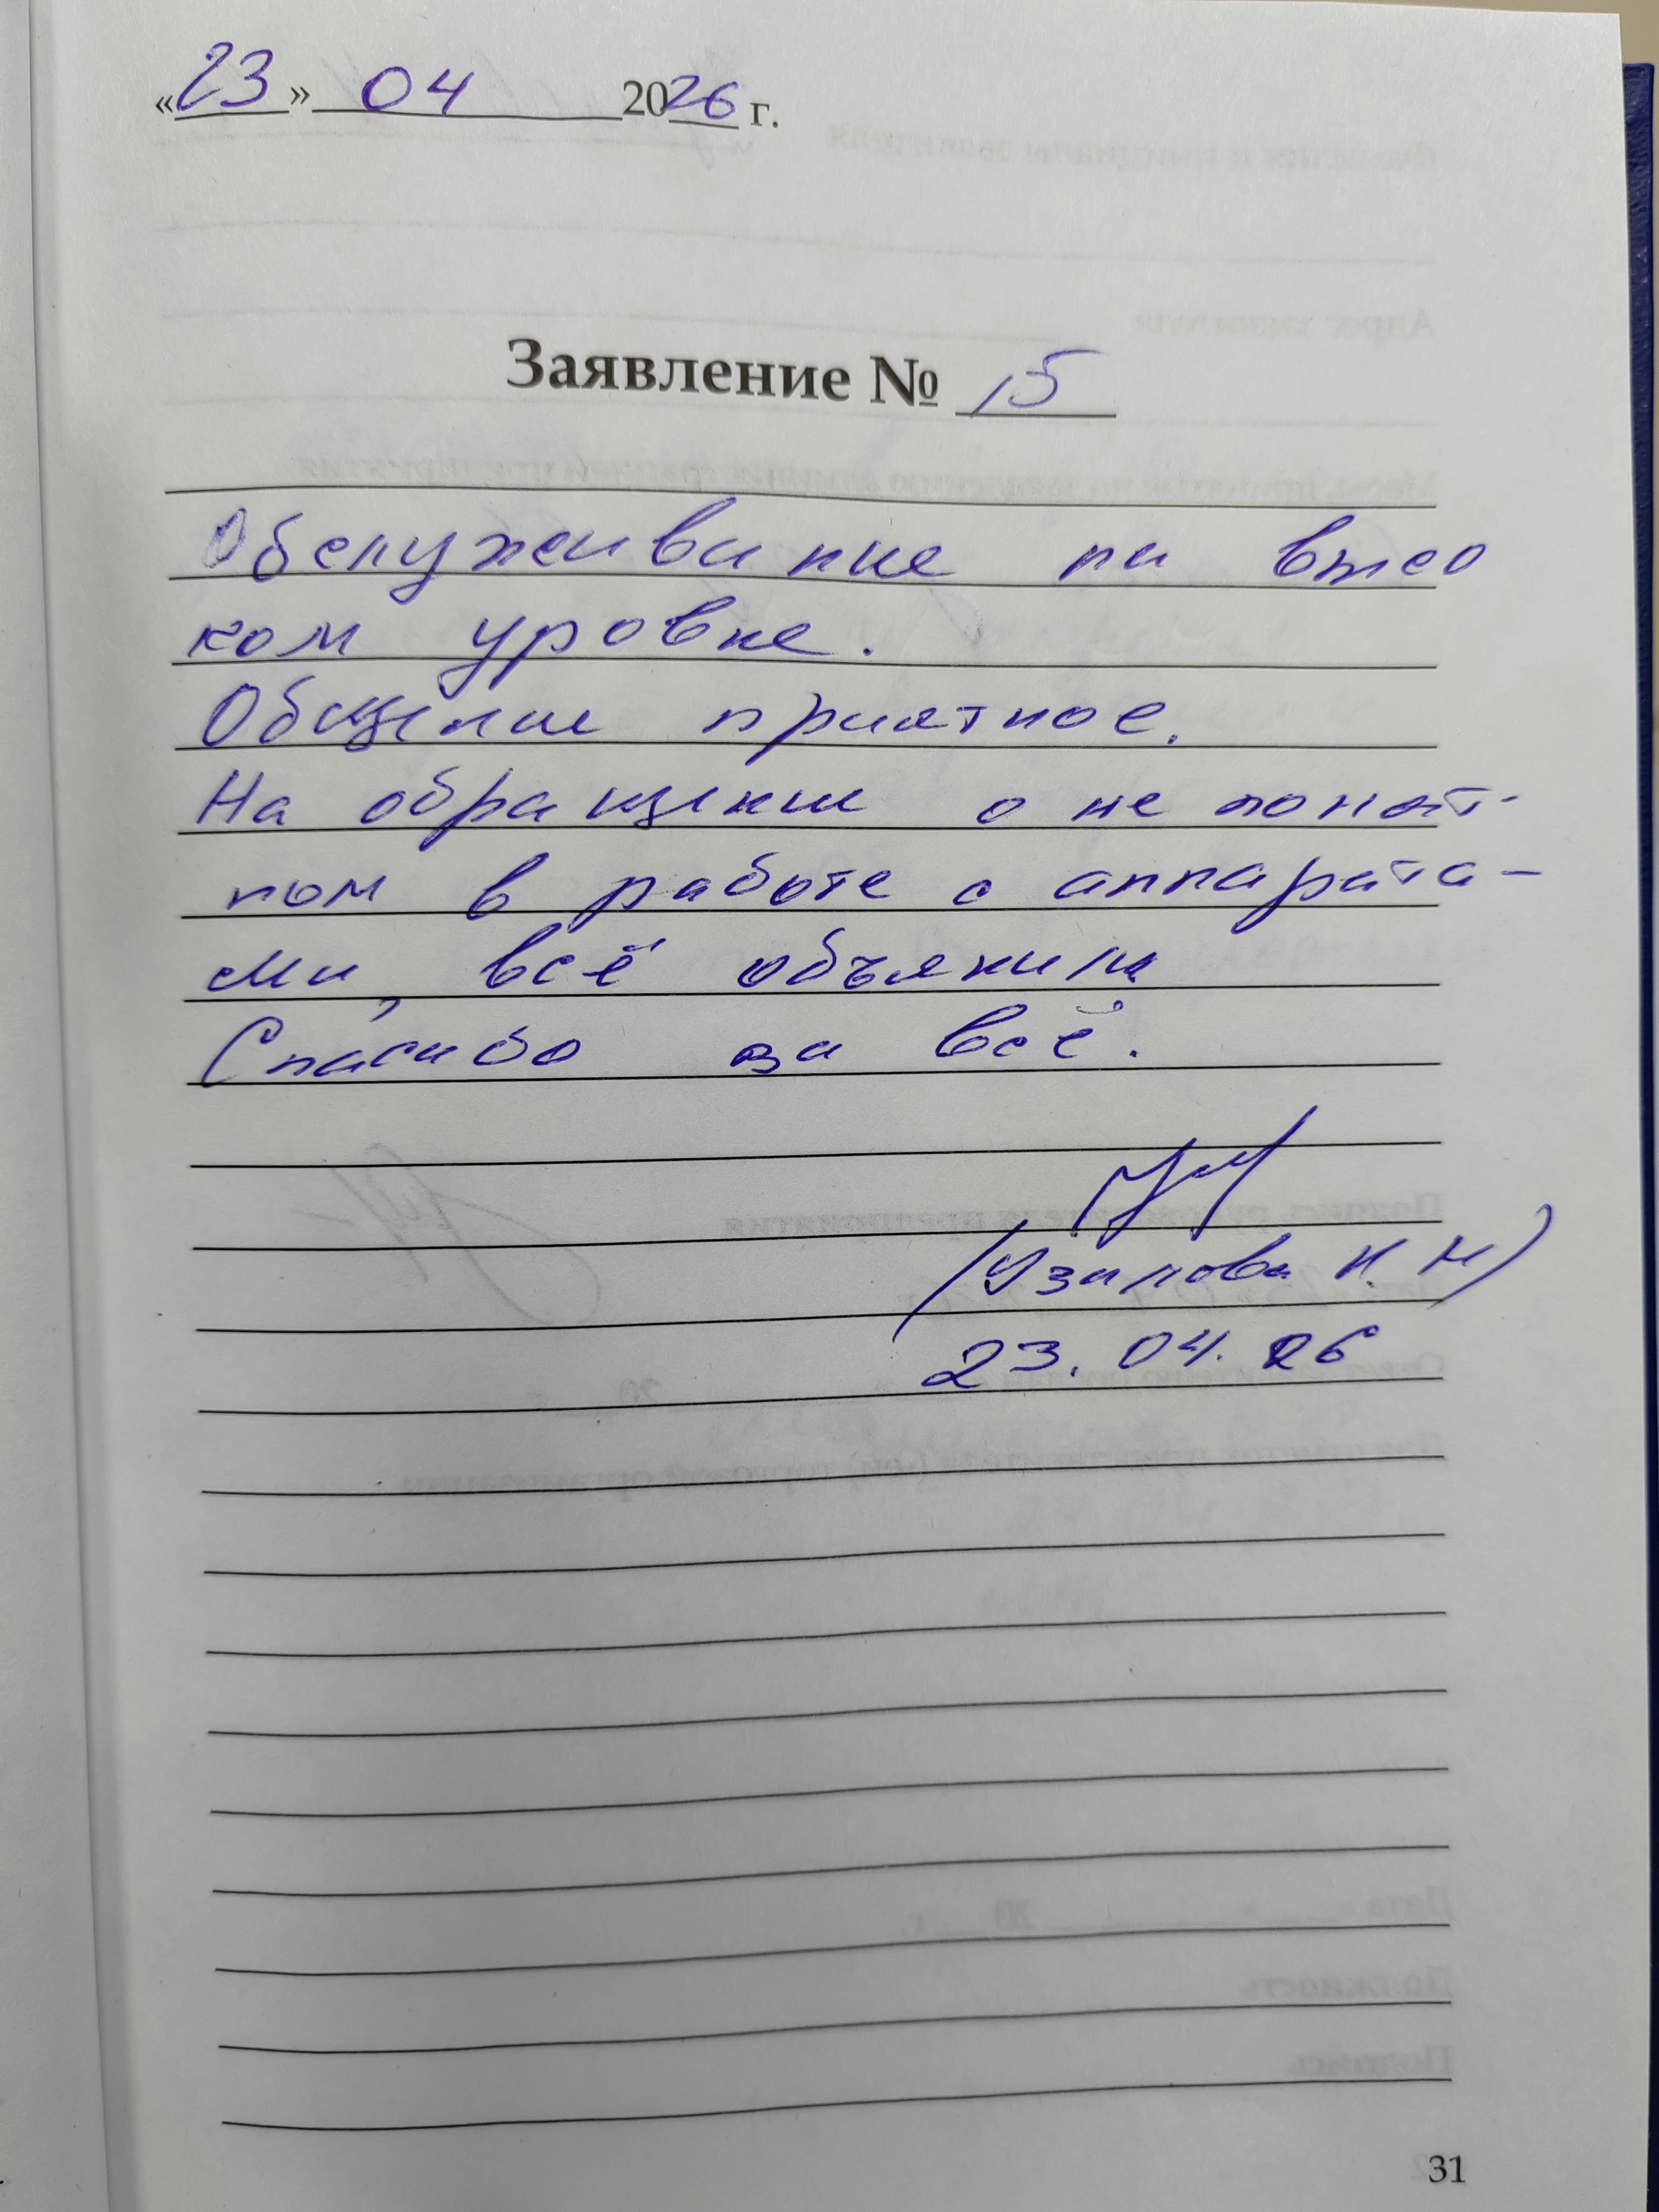 «23» 04 2026 г.
Заявление № 15
Обслуживание на высо
ком уровне.
Общение приятное.
На обращение о не понят-
ном в работе с аппарата-
ми, всё объяснили
Спасибо за всё.
23.04.26
31